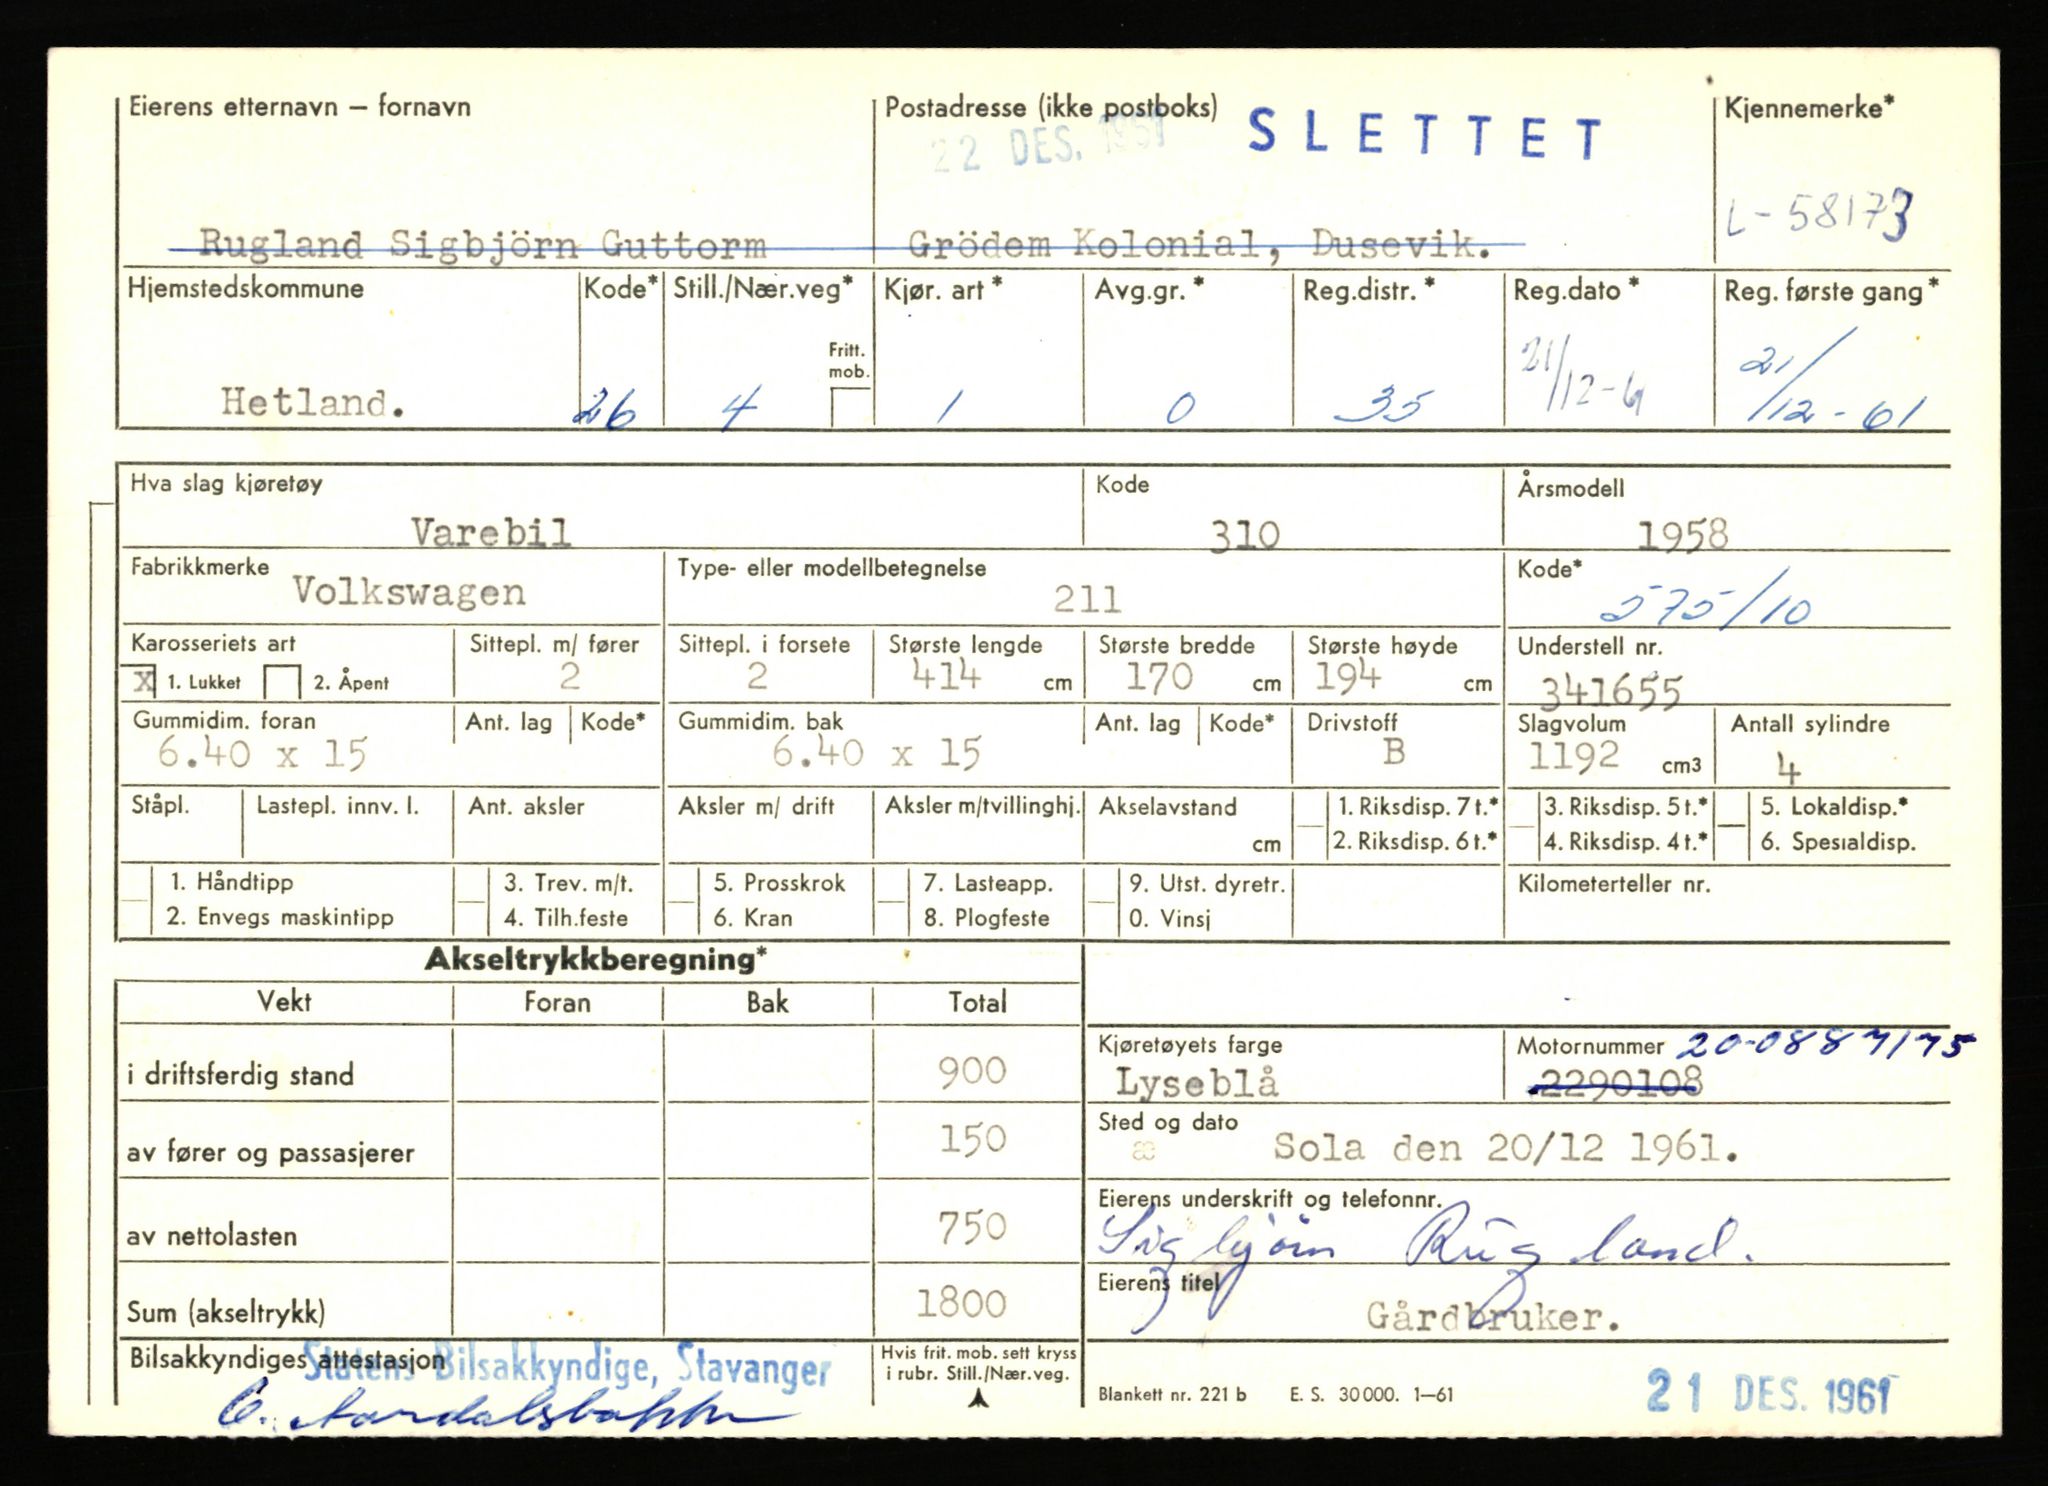 Eierens etternavn – fornavn
Postadresse (ikke postboks)
22 DES. 1961
SLETTET
Kjennemerke*
L-58173
Rugland Sigbjörn Guttorm
Grödem Kolonial, Dusevik.
Hjemstedskommune Kode* Still./Nær.veg* Kjør. art* Avg.gr.* Reg.distr.* Reg.dato* Reg. første gang*
Fritt. mob.
Hetland. 26 4 1 0 35 21/12-61 21/12-61
Hva slag kjøretøy Kode Årsmodell
Varebil 310 1958
Fabrikkmerke Type- eller modellbetegnelse Kode*
Volkswagen 211 575/10
Karosseriets art Sittepl. m/ fører Sittepl. i forsete Største lengde Største bredde Største høyde Understell nr.
X 1. Lukket 2. Åpent 2 2 414 cm 170 cm 194 cm 341655
Gummidim. foran Ant. lag Kode* Gummidim. bak Ant. lag Kode* Drivstoff Slagvolum Antall sylindre
6.40 x 15 6.40 x 15 B 1192 cm3 4
Ståpl. Lastepl. innv. l. Ant. aksler Aksler m/ drift Aksler m/tvillinghj. Akselavstand 1. Riksdisp. 7 t.* 3. Riksdisp. 5 t.* 5. Lokaldisp.*
cm 2. Riksdisp. 6 t.* 4. Riksdisp. 4 t.* 6. Spesialdisp.
1. Håndtipp 3. Trev. m/t. 5. Prosskrok 7. Lasteapp. 9. Utst. dyretr. Kilometerteller nr.
2. Envegs maskintipp 4. Tilh.feste 6. Kran 8. Plogfeste 0. Vinsj
Akseltrykkberegning*
Vekt Foran Bak Total
i driftsferdig stand 900
av fører og passasjerer 150
av nettolasten 750
Sum (akseltrykk) 1800
Kjøretøyets farge Motornummer 20-0887175
Lyseblå 2290108
Sted og dato
æ Sola den 20/12 1961.
Eierens underskrift og telefonnr.
Sigbjörn Rugland.
Eierens titel
Gårdbruker.
Bilsakkyndiges attestasjon
Statens Bilsakkyndige, Stavanger
Hvis frit. mob. sett kryss
i rubr. Still./Nær.veg.
Blankett nr. 221 b E. S. 30 000. 1–61
21 DES. 1961